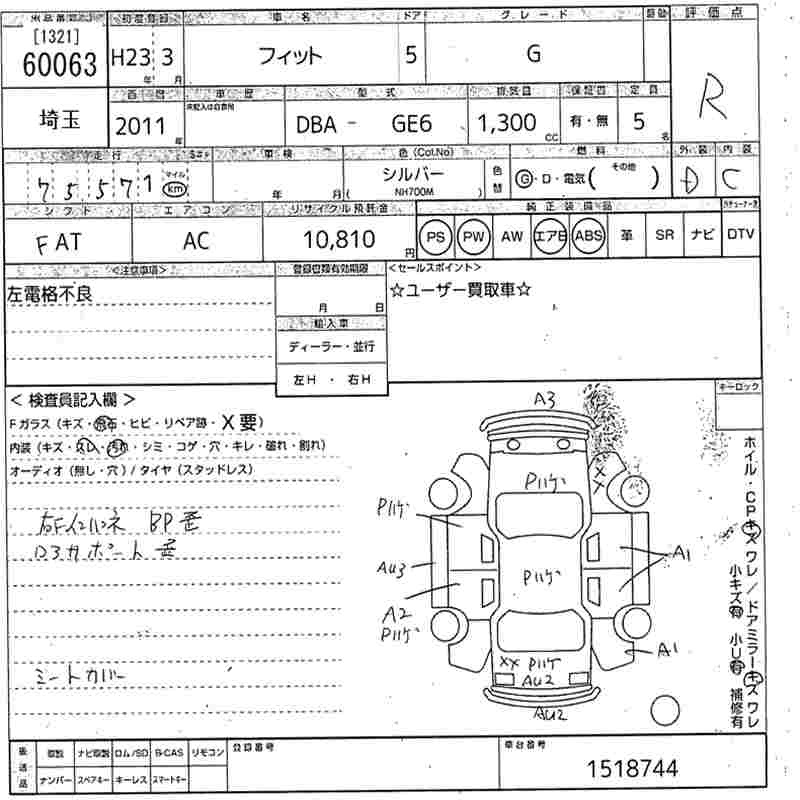 [1321]
60063
初度登録
H23 3
年 月
車名
フィット
ドア
5
グレード
G
評価点
R
埼玉
2011
年
車歴
型式
DBA - GE6
排気量
1,300
CC
有・無
定員
5
名
走行
75571
マイル
km
車検
年 月
色(Col.No)
シルバー
NH700M
色替
燃料
G・D・電気(その他 )
外装
D
内装
C
シフト
FAT
エアコン
AC
リサイクル預託金
10,810
円
純正装備品
PS
PW
AW
エアB
ABS
革
SR
ナビ
DTV
<注意事項>
左電格不良
月 日
輸入車
ディーラー・並行
左H ・ 右H
<セールスポイント>
☆ユーザー買取車☆
キーロック
<検査員記入欄>
Fガラス(キズ・飛石・ヒビ・リペア跡・X要)
内装(キズ・スレ・汚れ・シミ・コゲ・穴・キレ・破れ・割れ)
オーディオ(無し・穴)/タイヤ(スタッドレス)
シートカバー
A3
Pハゲ
XX
Pハゲ
A1
Au3
Pハゲ
A2
Pハゲ
A1
XX Pハゲ
Au2
Au2
ホイル・CPキズ ワレ/ドアミラーキズ ワレ
小キズ有 小U有 補修有
後送品
ナビ取説
ロム/SD
B-CAS
リモコン
ナンバー
スペアキー
キーレス
スマートキー
登録番号
車台番号
1518744